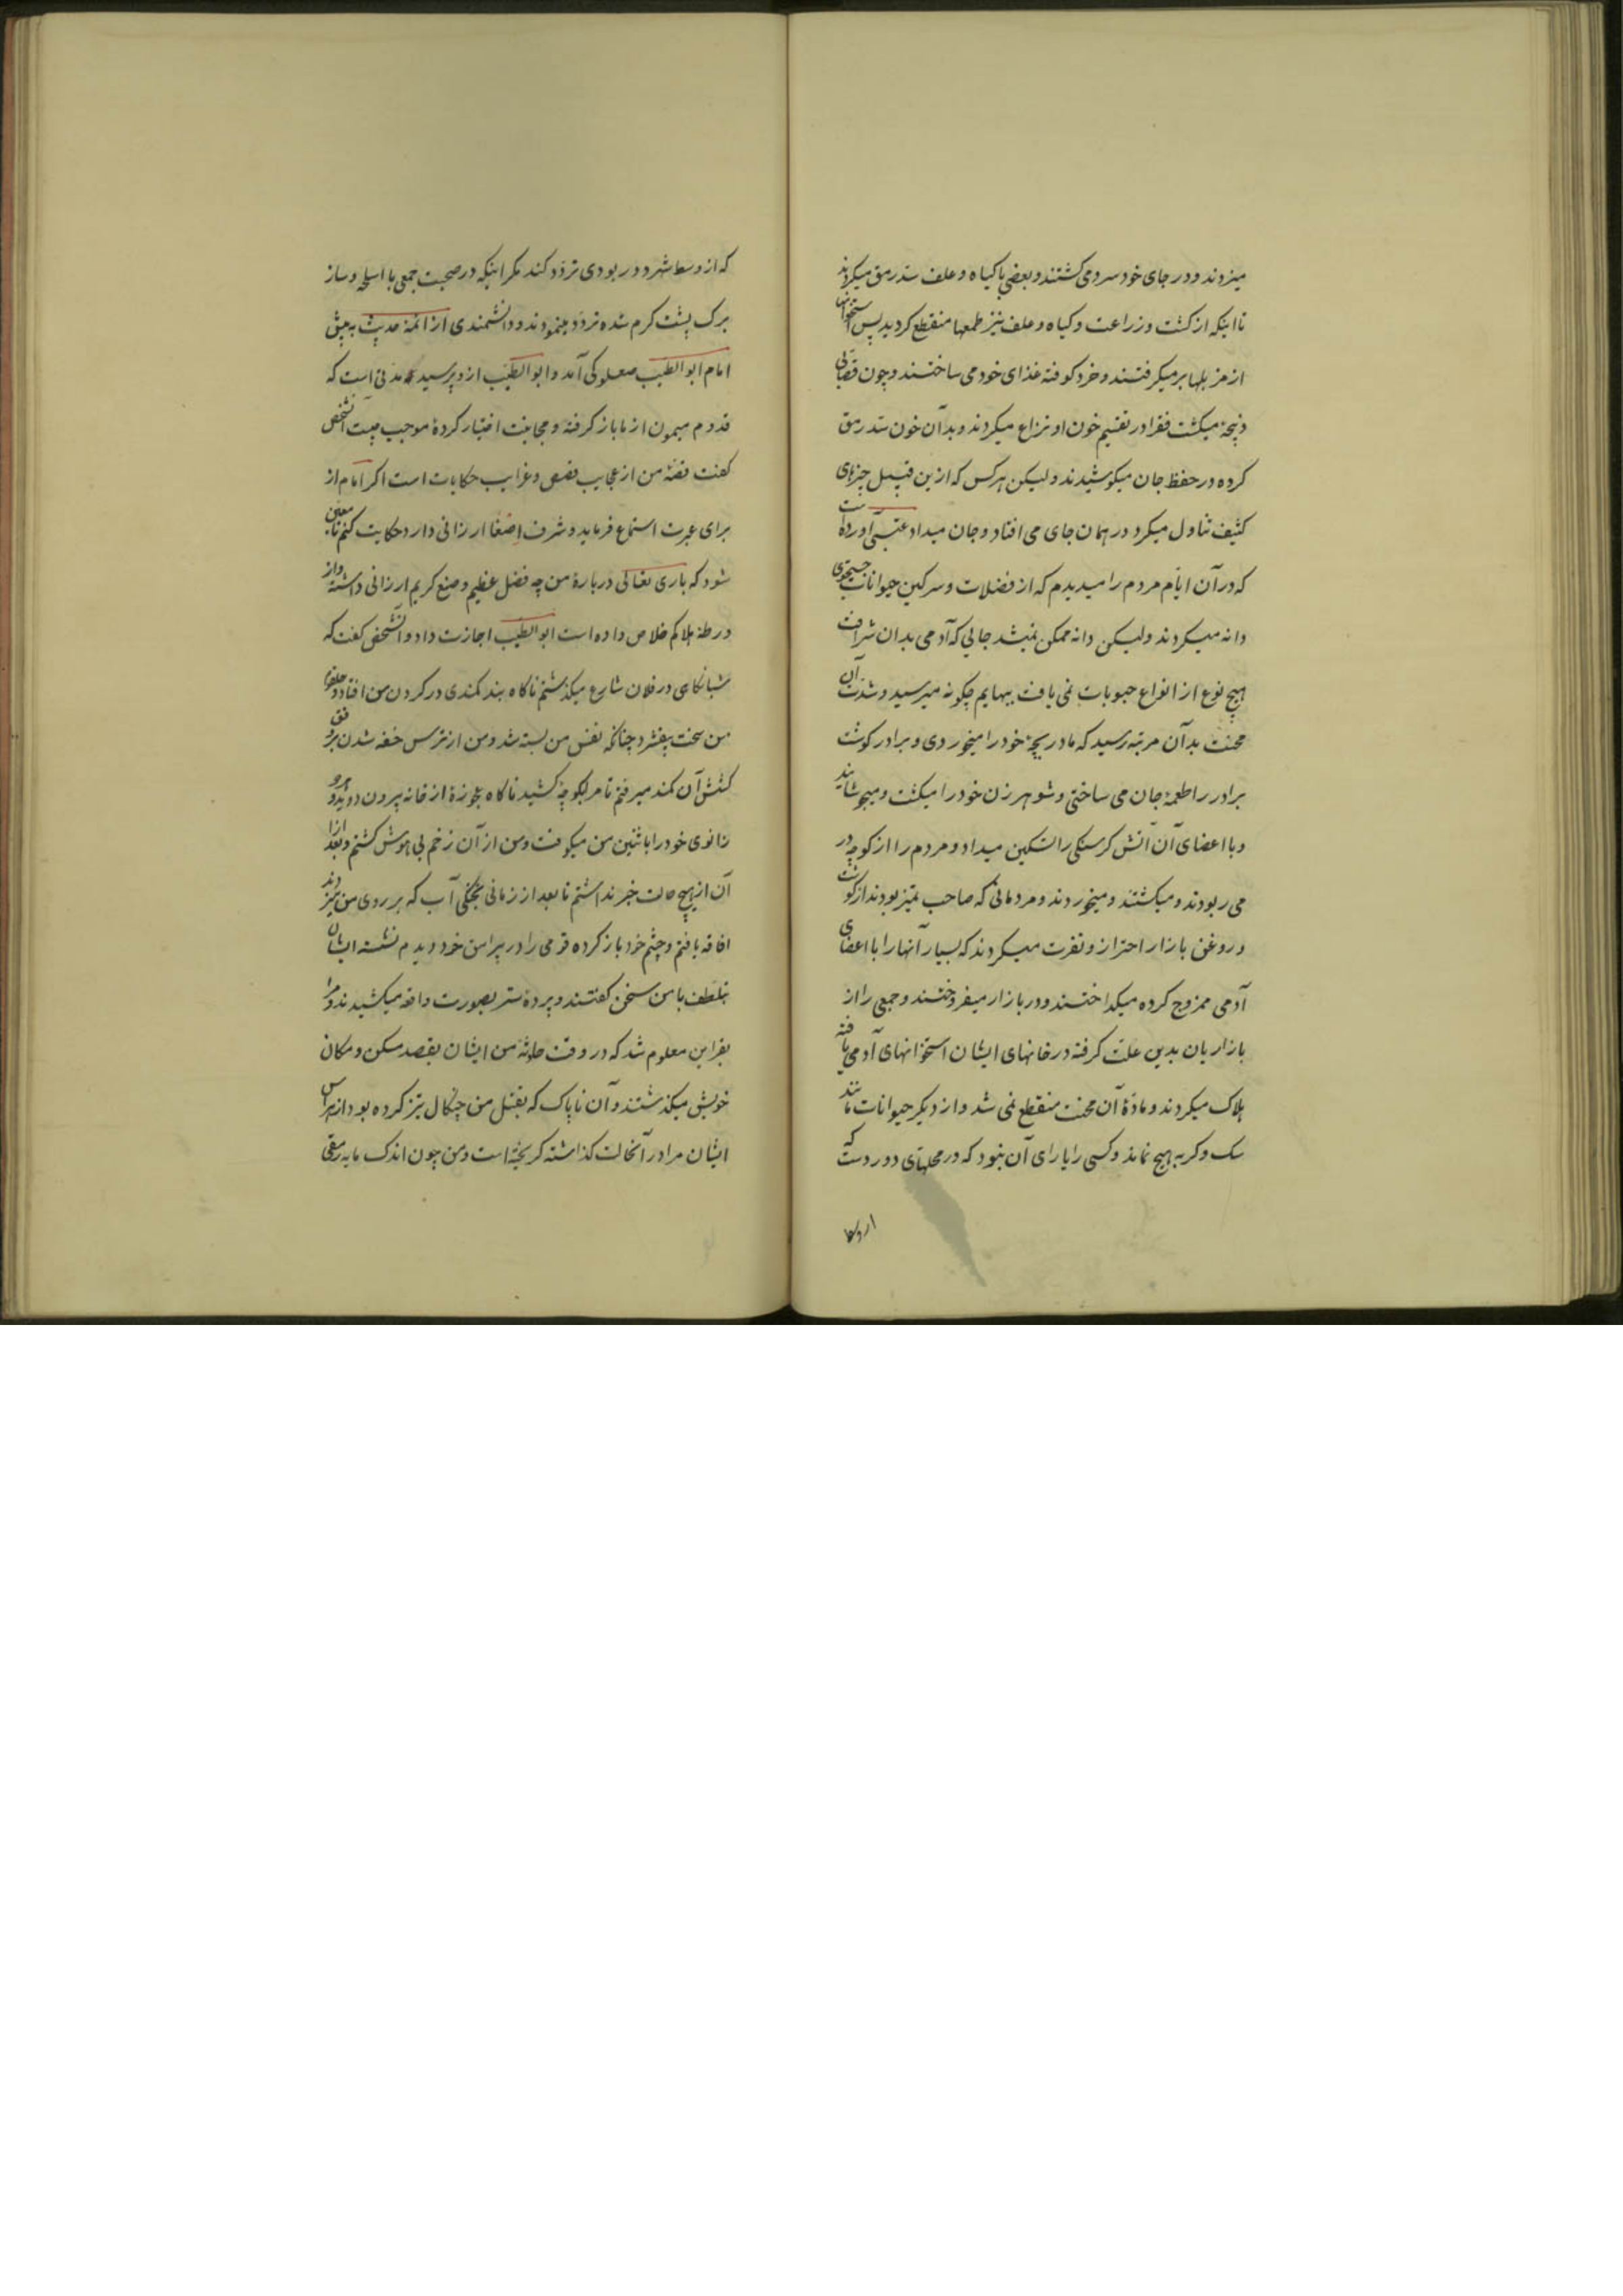 میزدند و در جای خود سرد می‌کشتند و بعضی با کیاه و علف سد رمق میکردند
تا اینکه از کشت و زراعت و کیاه و علف نیز طمعها منقطع کردید پس استخوانها
از مزبلها برمیکرفتند و خرد کوفته غذای خود می ساختند و چون قصابی
ذبیحۀ میکشت فقرا در تقسیم خون او نزاع میکردند و بدآن خون سد رمق
کرده در حفظ جان میکوشیدند ولیکن هرکس که ازین قبیل چیزهای
کثیف تناول میکرد در همان جای می افتاد و جان میداد عتبی آورده است
که در آن ایام مردم را میدیدم که از فضلات و سرکین حیوانات جستجوی
دانه میکردند ولیکن دانه ممکن نمیشد جایی که آدمی بدان شرافت
هیچ نوع از انواع حبوبات نمی یافت ببهایم چکونه میرسید و شدت آن
محنت بدآن مرتبه رسید که مادر بچۀ خود را میخوردی و برادر کوشت
برادر را طعمۀ جان می ساختی و شوهر زن خود را میکشت و میجوشانید
و با اعضای آن آتش کرسنکی را تسکین میداد و مردم را از کوچه در
می ربودند و میکشتند و میخوردند و مردمانی که صاحب تمیز بودند از کوشت
و روغن بازار احتراز و نفرت میکردند که بسیار آنها را با اعضای
آدمی ممزوج کرده میکداختند و در بازار میفروختند و جمعی را از
بازاریان بدین علت کرفته در خانهای ایشان استخوانهای آدمی یافته
هلاک میکردند و مادۀ آن محنت منقطع نمی شد و از دیکر حیوانات مانند
سک و کربه هیچ نماند و کسی را یارای آن نبود که در محلهای دور دست که
که از وسط شهر دور بودی تردد کند مکر اینکه در صحبت جمعی با اسلحه و ساز
برک پشت کرم شده تردد مینمودند و دانشمندی از ائمۀ حدیث به پیش
امام ابو الطیب صعلوکی آمد و ابو الطیب ازو پرسید که مدتی است که
قدوم میمون از ما باز کرفته و مجانبت اختیار کردۀ موجب چیست آنشخص
کفت قصۀ من از عجایب قصص و غرایب حکایات است اکر امام از
برای عبرت استماع فرماید و شرف اصغا ارزانی دارد حکایت کنم تا معین
شود که باری تعالی دربارۀ من چه فضل عظیم و صنع کریم ارزانی داشته و از
ورطۀ هلاکم خلاص داده است ابو الطیب اجازت داد و آنشخص کفت که
شبانکاهی در فلان شارع میکذشتم ناکاه بند کمندی در کردن من افتاد و حلقوم
من سخت بیفشرد چنانکه نفس من بسته شد و من از ترس خفه شدن بر وفق
کشش آن کمند میرفتم تا مرا بکوچۀ کشید ناکاه عجوزۀ از خانه بیرون دوید و هردو
زانوی خود را بانثیین من میکوفت و من از آن زخم بی هوش کشتم و بعد از
آن از هیچ حالت خبر نداشتم تا بعد از زمانی بخنکی آب که بر روی من میزدند
افاقه یافتم و چشم خود باز کرده قومی را در پیرامن خود دیدم نشسته ایشان
بتلطف با من سخن کفتند و پردۀ ستر بصورت واقعه میکشیدند و مرا
بقراین معلوم شد که در وقت حادثه من ایشان بقصد مسکن و مکان
خویش میکذشتند و آن ناپاک که بقتل من چنکال تیز کرده بود از هراس
ایشان مرا در آنحالت کذاشته کریخته است و من چون اندک مایه رمقی